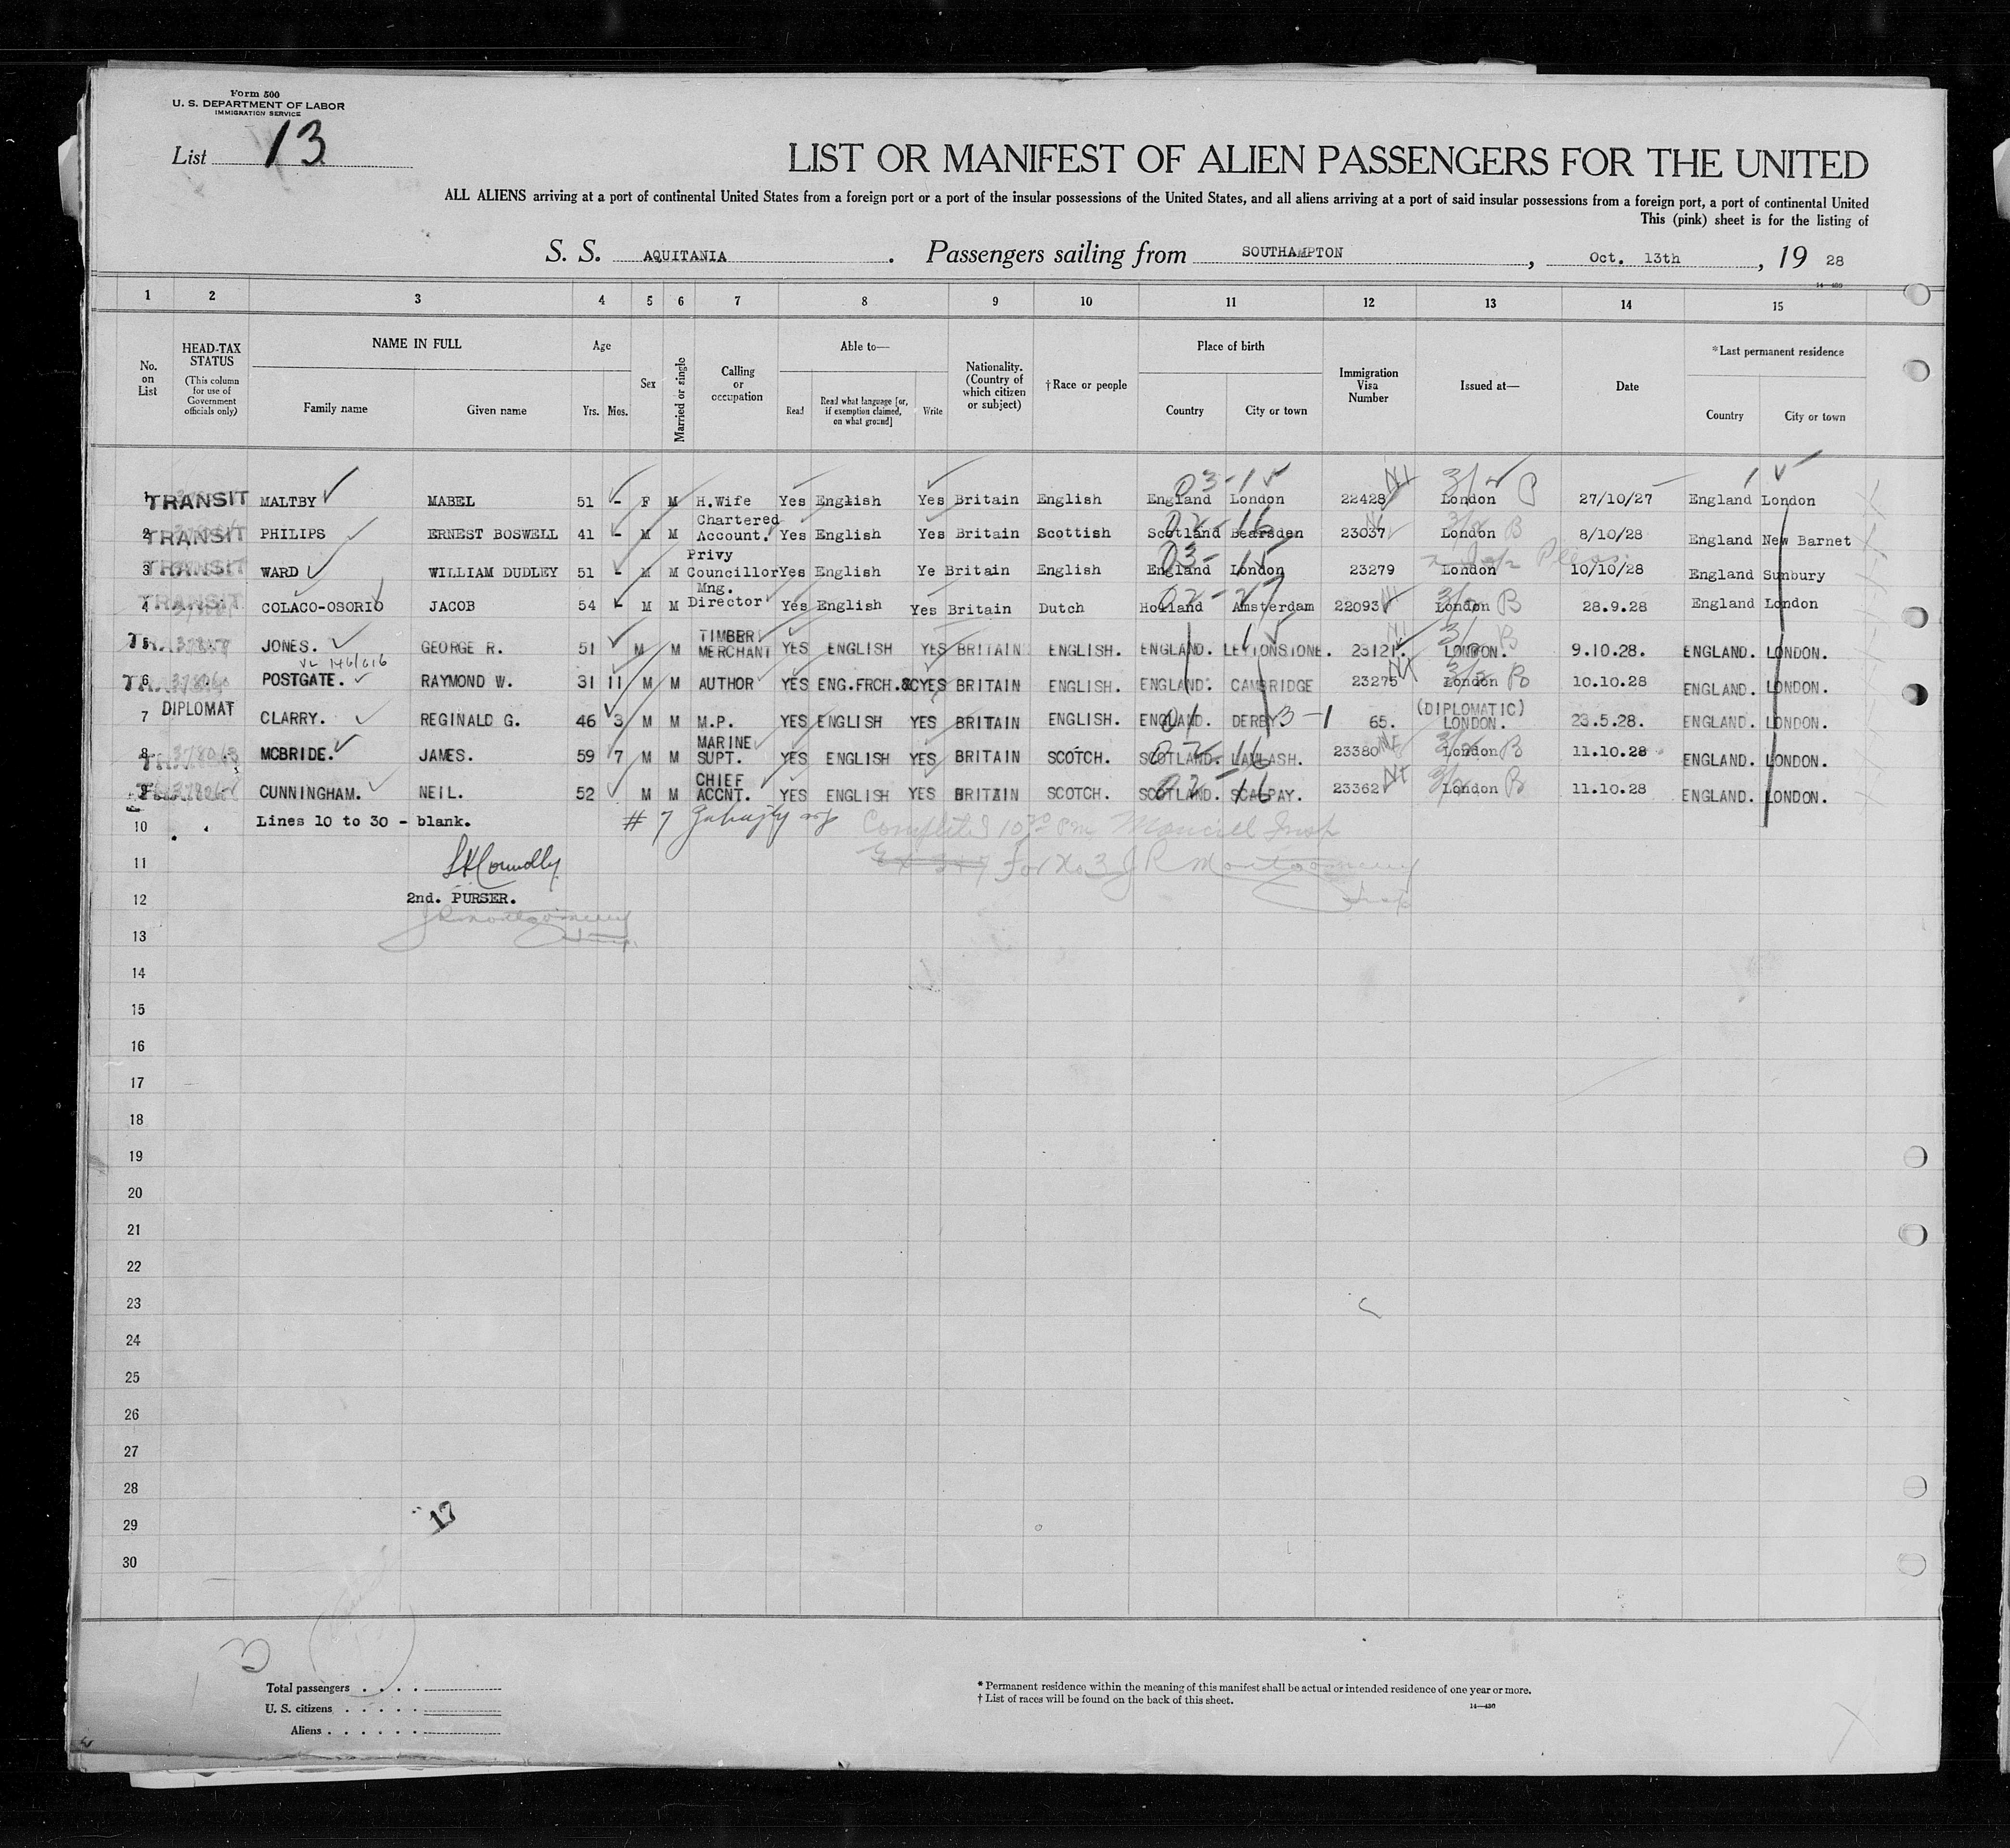 Form 500
U. S. DEPARTMENT OF LABOR
IMMIGRATION SERVICE
List 13
LIST OR MANIFEST OF ALIEN PASSENGERS FOR THE UNITED
ALL ALIENS arriving at a port of continental United States from a foreign port or a port of the insular possessions of the United States, and all aliens arriving at a port of said insular possessions from a foreign port, a port of continental United
This (pink) sheet is for the listing of
S. S. AQUITANIA . Passengers sailing from SOUTHAMPTON , Oct. 13th , 19 28
14—430
1 2 3 4 5 6 7 8 9 10 11 12 13 14 15
No. on List
HEAD-TAX STATUS
(This column for use of Government officials only)
NAME IN FULL
Family name Given name
Age
Yrs. Mos.
Sex
Married or single
Calling or occupation
Able to—
Read Read what language [or, if exemption claimed, on what ground] Write
Nationality. (Country of which citizen or subject)
†Race or people
Place of birth
Country City or town
Immigration Visa Number
Issued at—
Date
*Last permanent residence
Country City or town
03-15
1 TRANSIT MALTBY MABEL 51 - F M H.Wife Yes English Yes Britain English England London 22428 London 27/10/27 England London
02-16
2 TRANSIT PHILIPS ERNEST BOSWELL 41 - M M Chartered Account. Yes English Yes Britain Scottish Scotland Bearsden 23037 London B 8/10/28 England New Barnet
03-15
3 TRANSIT WARD WILLIAM DUDLEY 51 - M M Privy Councillor Yes English Ye Britain English England London 23279 London 10/10/28 England Sunbury
4 TRANSIT COLACO-OSORIO JACOB 54 - M M Mng. Director Yes English Yes Britain Dutch Holland Amsterdam 22093 London B 28.9.28 England London
5 JONES. GEORGE R. 51 M M TIMBER MERCHANT YES ENGLISH YES BRITAIN ENGLISH. ENGLAND. LEYTONSTONE. 23121. LONDON. B 9.10.28. ENGLAND. LONDON.
146/616
6 POSTGATE. RAYMOND W. 31 11 M M AUTHOR YES ENG.FRCH.&C YES BRITAIN ENGLISH. ENGLAND. CAMBRIDGE 23275 London B 10.10.28 ENGLAND. LONDON.
7 DIPLOMAT CLARRY. REGINALD G. 46 3 M M M.P. YES ENGLISH YES BRITAIN ENGLISH. ENGLAND. DERBY 65. (DIPLOMATIC) LONDON. 23.5.28. ENGLAND. LONDON.
8 MCBRIDE. JAMES. 59 7 M M MARINE SUPT. YES ENGLISH YES BRITAIN SCOTCH. SCOTLAND. LAMLASH. 23380 London B 11.10.28 ENGLAND. LONDON.
02-16
9 CUNNINGHAM. NEIL. 52 M M CHIEF ACCNT. YES ENGLISH YES BRITAIN SCOTCH. SCOTLAND. SCALPAY. 23362 London B 11.10.28 ENGLAND. LONDON.
10 Lines 10 to 30 - blank. # 7
11 For No 3 J R Montgomery
12 2nd. PURSER.
J R Montgomery
13
14
15
16
17
18
19
20
21
22
23
24
25
26
27
28
29
17
30
3
Total passengers
U. S. citizens
Aliens
* Permanent residence within the meaning of this manifest shall be actual or intended residence of one year or more.
† List of races will be found on the back of this sheet.
14—430